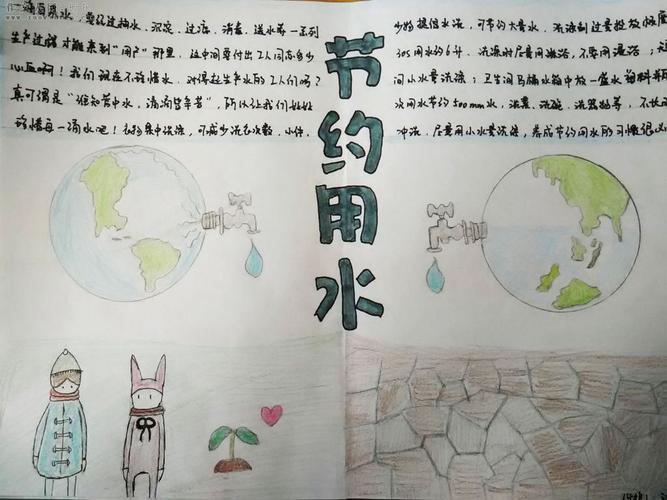 一滴自来水，要经过抽水、沉淀、过滤、消毒、送水等一系列
生产过程才能来到“用户”那里，这中间要付出工人同志多少
心血啊！我们现在不珍惜水，对得起生产水的工人们吗？
真可谓是“谁知杯中水，滴滴皆辛苦”，所以让我们
珍惜每一滴水吧！衣物集中洗涤，可减少洗衣次数，小件、
少物提倡水洗，可节约大量水，洗涤剂过量投放
用水约6升，洗澡时尽量用淋浴，不要用盆浴；
间小水量洗涤；卫生间马桶水箱中放一盛水的料瓶
次用水节约500mm水，洗菜、洗碗、洗器物等，不长
冲洗，尽量用小水量洗涤，养成节约用水的习惯很
节约用水